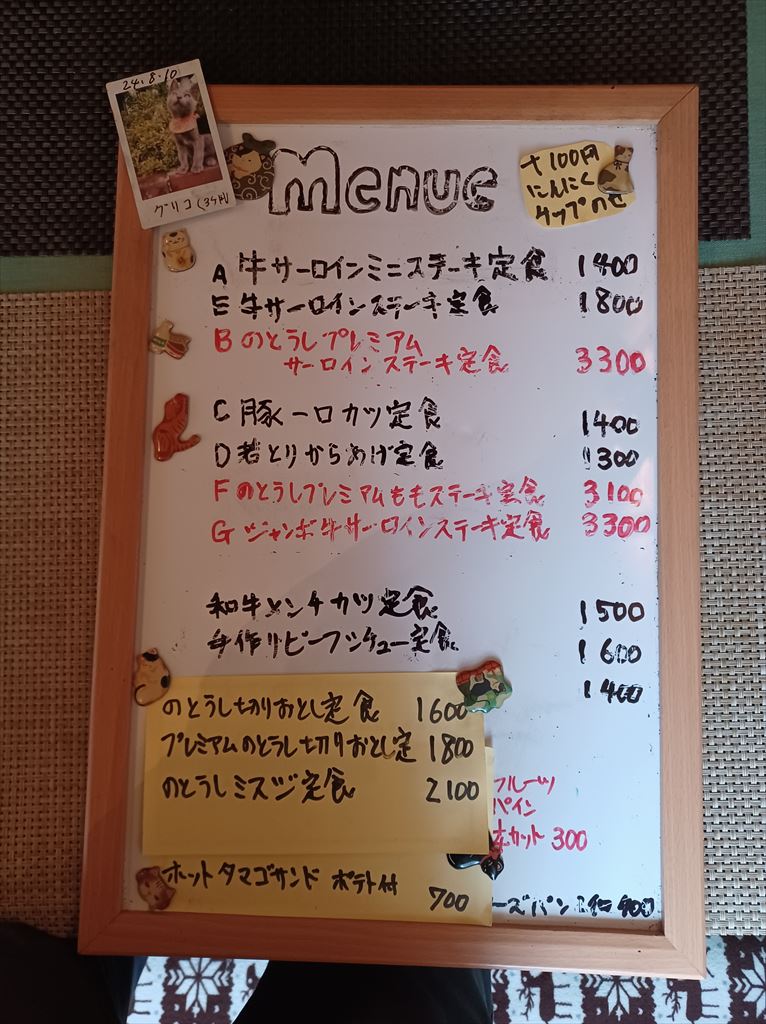 24.8.10
グリコ(3才半)
Menue
+100円
にんにく
チップのせ
A 牛サーロインミニステーキ定食 1400
E 牛サーロインステーキ定食 1800
B のとうしプレミアム
サーロインステーキ定食 3300
C 豚一口カツ定食 1400
D 若とりからあげ定食 1300
F のとうしプレミアムももステーキ定食 3100
G ジャンボ牛サーロインステーキ定食 3300
和牛メンチカツ定食 1500
手作りビーフシチュー定食 1600
1400
のとうし切りおとし定食 1600
プレミアムのとうし切りおとし定 1800
のとうしミスジ定食 2100
フルーツ
パイン
カット 300
ホットタマゴサンド ポテト付 700
ーズパン 400